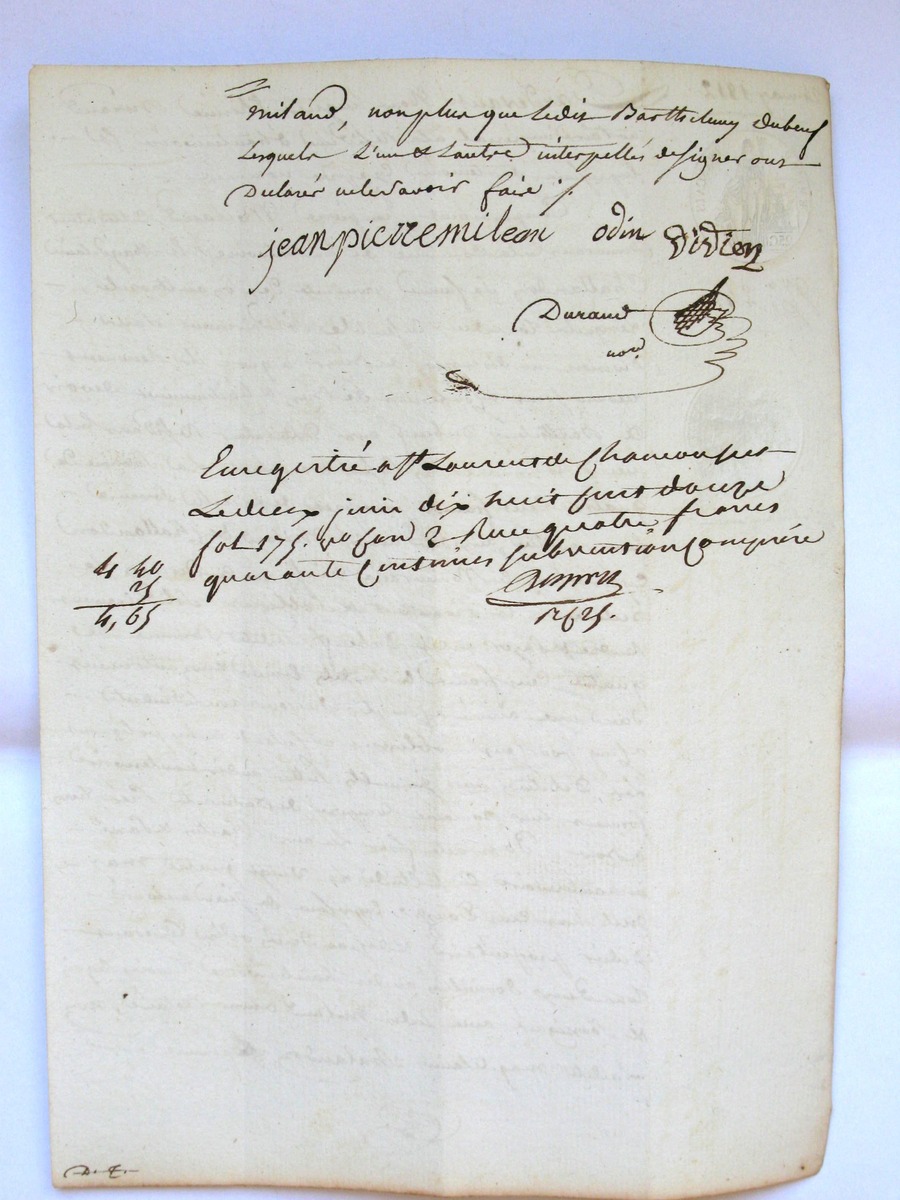 milan, non plus que ledit Barthelemy dubeuf
Lesquels L'un & Lautre interpellés de signer ont
Declarés ne le savoir faire ./.
jean pierre milean odin didier
Durand
nore
Enregistré a St Laurent de Chamousset
Le deux juin dix huit cent douze
fol 175. vo Case 2 Reçu quatre francs
quarante Centimes subvention Comprise
4 40
25
4,65
D. T.